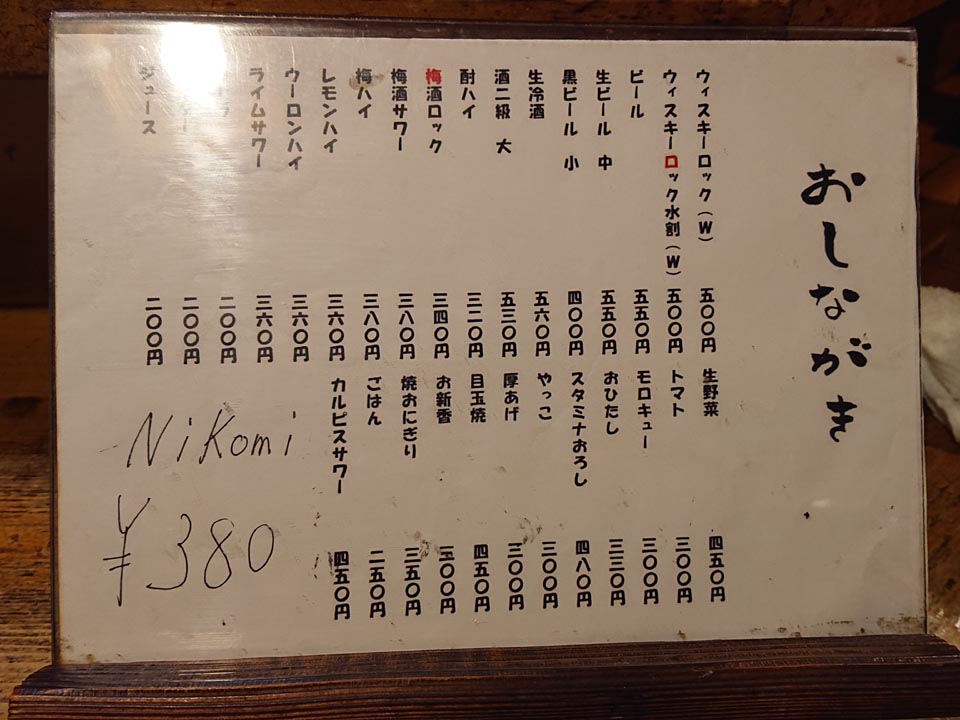 おしながき
ウィスキーロック(W) 五〇〇円
ウィスキーロック水割(W) 五〇〇円
ビール 五五〇円
生ビール 中 五五〇円
黒ビール 小 四〇〇円
生冷酒 五六〇円
酒二級 大 五三〇円
酎ハイ 三二〇円
梅酒ロック 三四〇円
梅酒サワー 三八〇円
梅ハイ 三八〇円
レモンハイ 三六〇円
ウーロンハイ 三六〇円
ライムサワー 三六〇円
二〇〇円
二〇〇円
ジュース 二〇〇円
生野菜 四五〇円
トマト 三〇〇円
モロキュー 三〇〇円
おひたし 三三〇円
スタミナおろし 四八〇円
やっこ 三〇〇円
厚あげ 三〇〇円
目玉焼 四五〇円
お新香 三〇〇円
焼おにぎり 三五〇円
ごはん 二五〇円
カルピスサワー 四五〇円
Nikomi
¥380